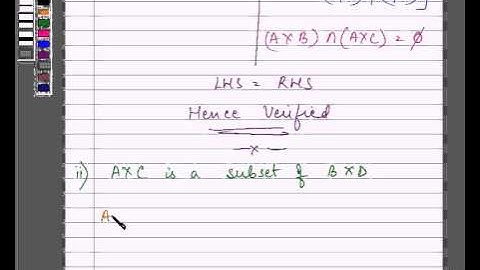 (A×B) ∩ (A×C) = ϕ
LHS = RHS
Hence Verified
x
ii) A×C is a subset of B×D
A